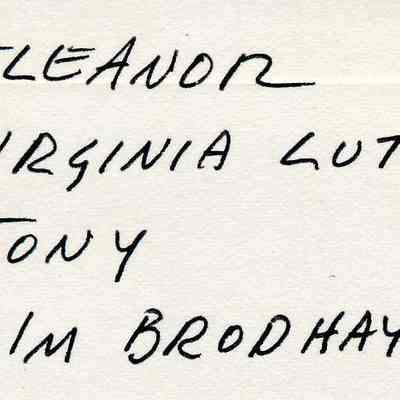 ELEANOR
VIRGINIA LUT
TONY
IM BRODHAY